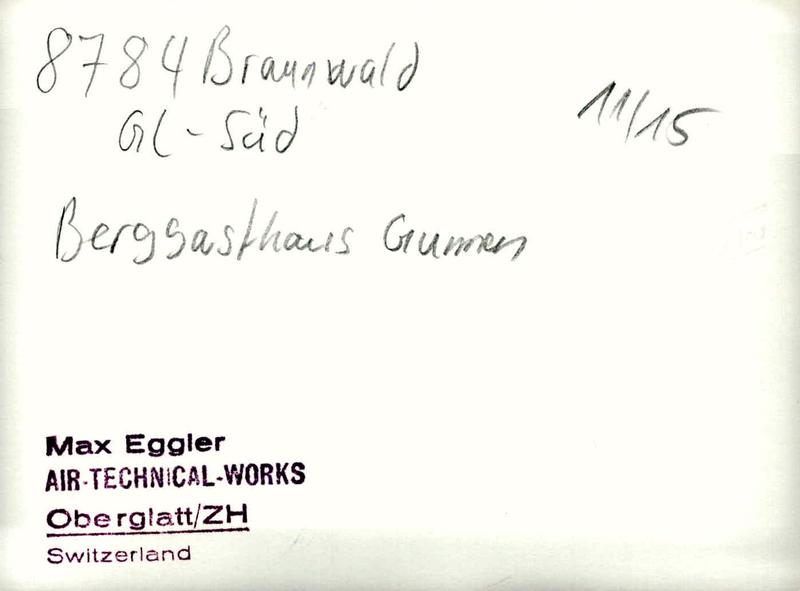 8784 Braunwald
GL-Süd
11/15
Berggasthaus Gumen
Max Eggler
AIR-TECHNICAL-WORKS
Oberglatt/ZH
Switzerland